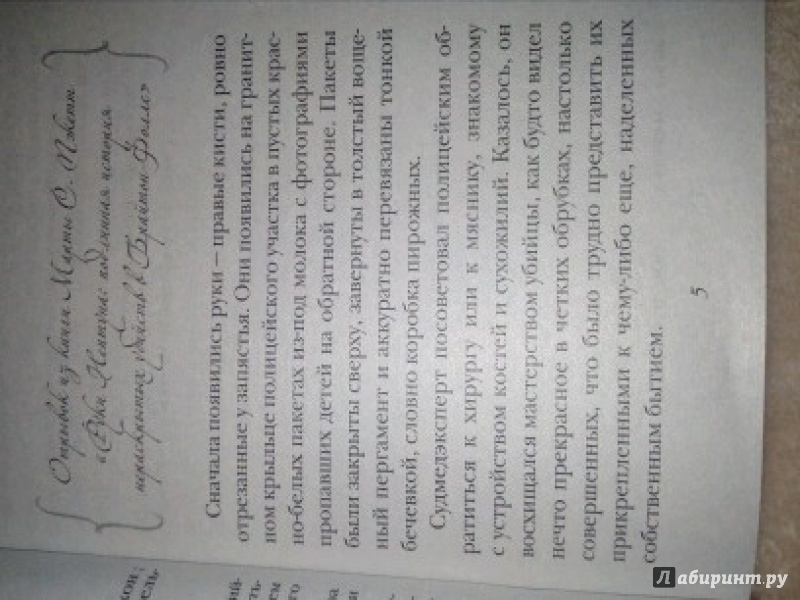 Отрывок из книги Марты С. Пэкетт
«Руки Нептуна: подлинная история
нераскрытых убийств в Брайтон Фоллс»
Сначала появились руки – правые кисти, ровно
отрезанные у запястья. Они появились на гранит-
ном крыльце полицейского участка в пустых крас-
но-белых пакетах из-под молока с фотографиями
пропавших детей на обратной стороне. Пакеты
были закрыты сверху, завернуты в толстый воще-
ный пергамент и аккуратно перевязаны тонкой
бечевкой, словно коробка пирожных.
Судмедэксперт посоветовал полицейским об-
ратиться к хирургу или к мяснику, знакомому
с устройством костей и сухожилий. Казалось, он
восхищался мастерством убийцы, как будто видел
нечто прекрасное в четких обрубках, настолько
совершенных, что было трудно представить их
прикрепленными к чему-либо еще, наделенных
собственным бытием.
5
Лабиринт.ру